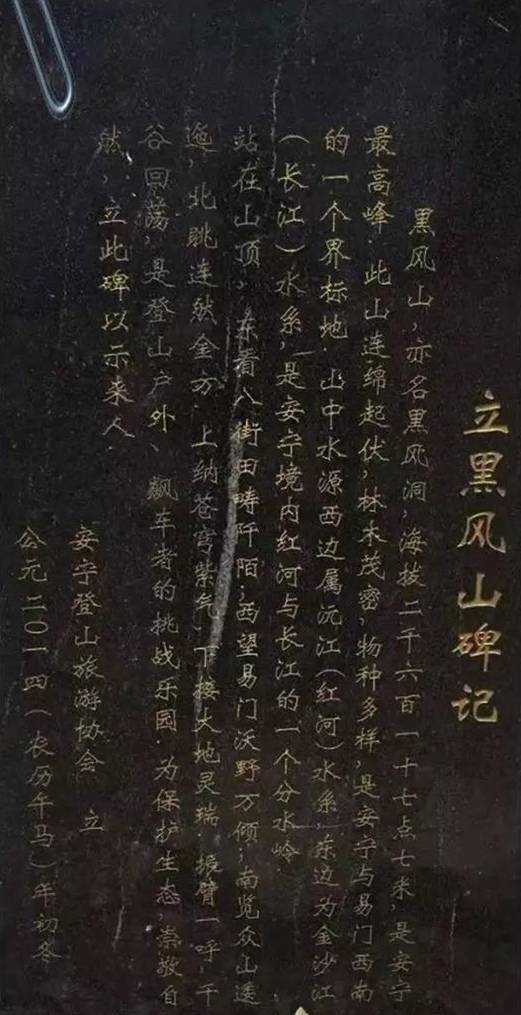 立黑风山碑记
黑风山，亦名黑风洞，海拔二千六百一十七点七米，是安宁
最高峰。此山连绵起伏，林木茂密，物种多样，是安宁与易门西南
的一个界标地。山中水源西边属沅江（红河）水系，东边为金沙江
（长江）水系，是安宁境内红河与长江的一个分水岭。
站在山顶，东看八街田畴阡陌，西望易门沃野万顷，南览众山逶
迤，北眺连然金方。上纳苍穹紫气，下接大地灵瑞，振臂一呼，千
谷回荡，是登山户外、飙车者的挑战乐园。为保护生态，崇敬自
然，立此碑以示来人。
安宁登山旅游协会 立
公元二〇一四（农历午马）年初冬